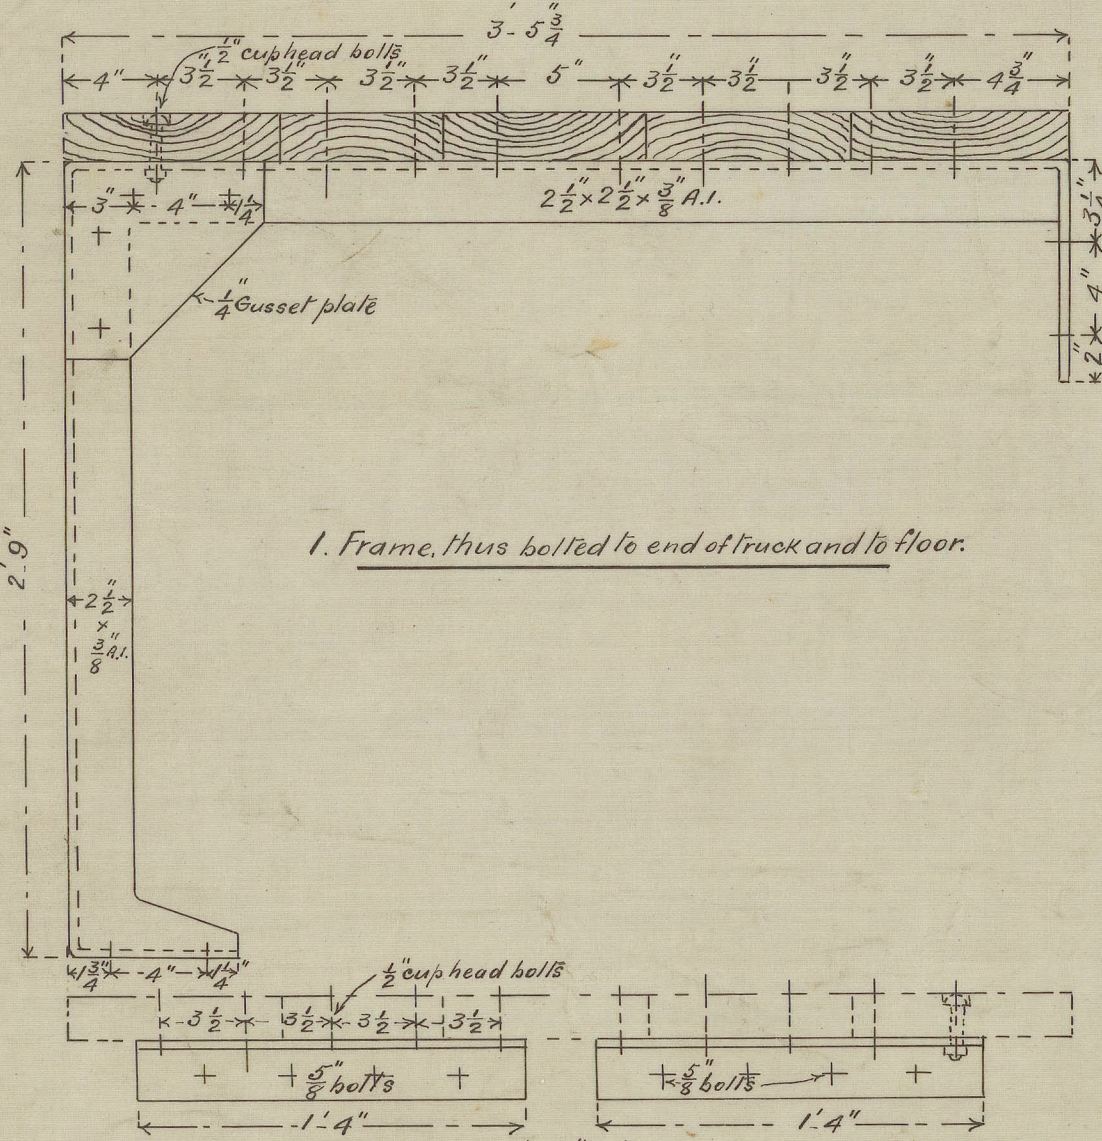 3'- 5 3/4"
1/2" cuphead bolts
4" 3 1/2" 3 1/2" 3 1/2" 3 1/2" 5" 3 1/2" 3 1/2" 3 1/2" 3 1/2" 4 3/4"
2 1/2" x 2 1/2" x 3/8" A.I.
3" 4" 1 1/4"
3 1/4"
4"
2"
1/4" Gusset plate
2'-9"
1. Frame, thus bolted to end of truck and to floor.
2 1/2"
x
3/8" A.I.
1 3/4" 4" 1 1/4"
1/2" cuphead bolts
3 1/2 3 1/2 3 1/2 3 1/2
5/8" bolts
5/8" bolts
1'-4"
1'-4"